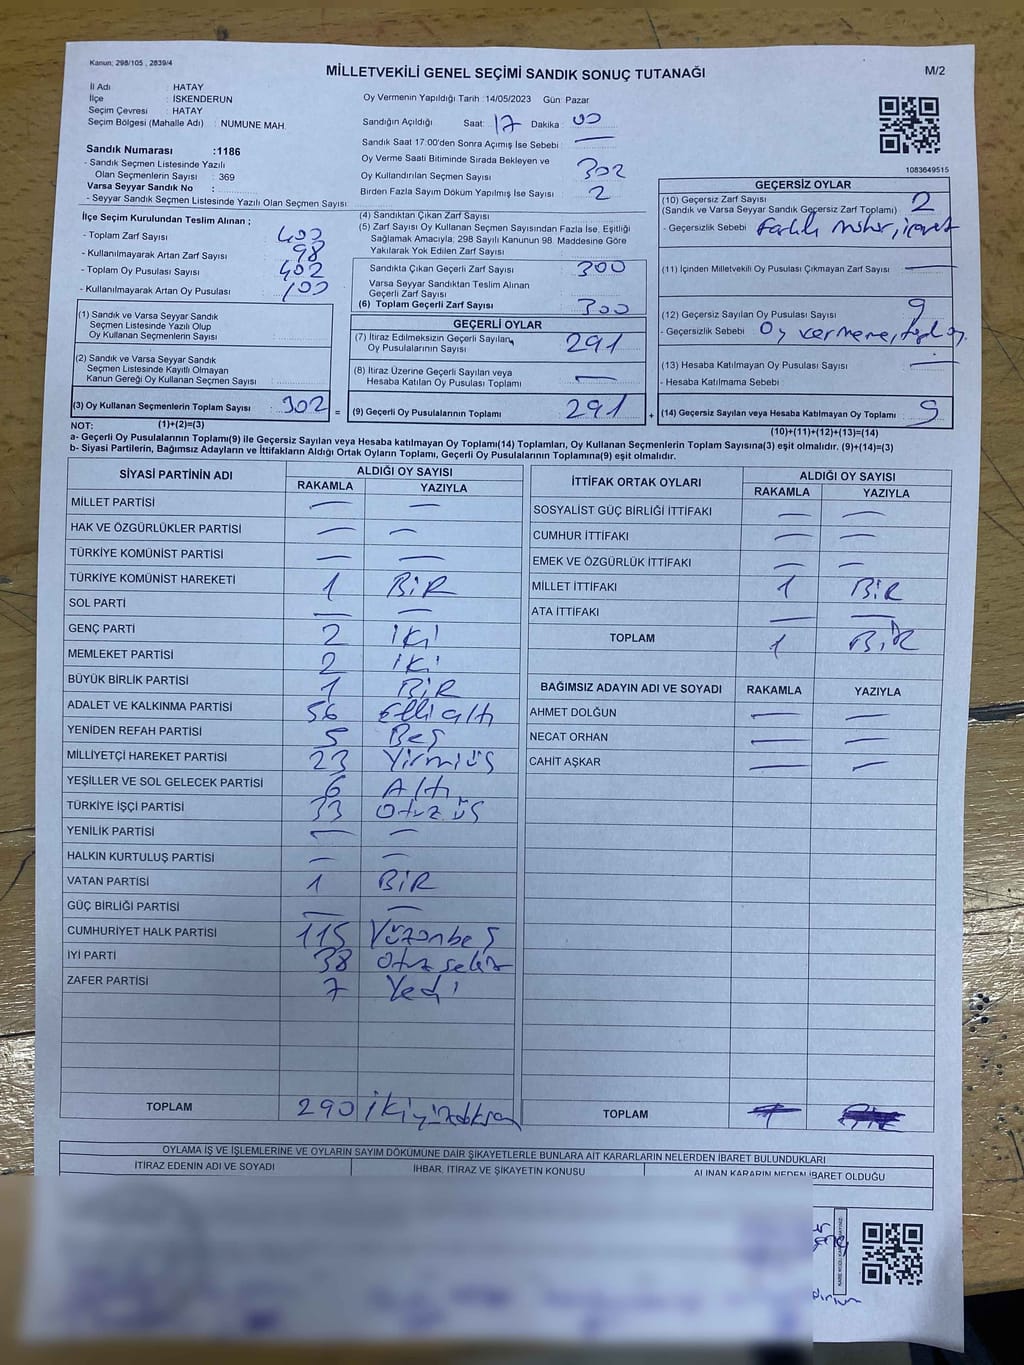 Kanun: 298/105 , 2839/4
MİLLETVEKİLİ GENEL SEÇİMİ SANDIK SONUÇ TUTANAĞI
M/2
İl Adı : HATAY
İlçe : İSKENDERUN
Seçim Çevresi : HATAY
Seçim Bölgesi (Mahalle Adı) : NUMUNE MAH.
Sandık Numarası :1186
- Sandık Seçmen Listesinde Yazılı
Olan Seçmenlerin Sayısı : 369
Varsa Seyyar Sandık No :
- Seyyar Sandık Seçmen Listesinde Yazılı Olan Seçmenlerin Sayısı
Oy Vermenin Yapıldığı Tarih :14/05/2023 Gün: Pazar
Sandığın Açıldığı Saat: 17 Dakika : 00
Sandık Saat 17:00'den Sonra Açımış İse Sebebi : —
Oy Verme Saati Bitiminde Sırada Bekleyen ve
Oy Kullandırılan Seçmen Sayısı : 302
Birden Fazla Sayım Döküm Yapılmış İse Sayısı : 2
1083649515
İlçe Seçim Kurulundan Teslim Alınan ;
- Toplam Zarf Sayısı :
- Kullanılmayarak Artan Zarf Sayısı : 98
- Toplam Oy Pusulası Sayısı : 402
- Kullanılmayarak Artan Oy Pusulası : 100
(1) Sandık ve Varsa Seyyar Sandık
Seçmen Listesinde Yazılı Olup
Oy Kullanan Seçmenlerin Sayısı :
(2) Sandık ve Varsa Seyyar Sandık
Seçmen Listesinde Kayıtlı Olmayan
Kanun Gereği Oy Kullanan Seçmen Sayısı :
(3) Oy Kullanan Seçmenlerin Toplam Sayısı : 302 =
(1)+(2)=(3)
(4) Sandıktan Çıkan Zarf Sayısı
(5) Zarf Sayısı Oy Kullanan Seçmen Sayısından Fazla İse, Eşitliği
Sağlamak Amacıyla, 298 Sayılı Kanunun 98. Maddesine Göre
Yakılarak Yok Edilen Zarf Sayısı :
Sandıkta Çıkan Geçerli Zarf Sayısı : 300
Varsa Seyyar Sandıktan Teslim Alınan
Geçerli Zarf Sayısı :
(6) Toplam Geçerli Zarf Sayısı : 300
GEÇERLİ OYLAR
(7) İtiraz Edilmeksizin Geçerli Sayılan
Oy Pusulalarının Sayısı : 291
(8) İtiraz Üzerine Geçerli Sayılan veya
Hesaba Katılan Oy Pusulası Toplamı : —
(9) Geçerli Oy Pusulalarının Toplamı : 291 +
GEÇERSİZ OYLAR
(10) Geçersiz Zarf Sayısı : 2
(Sandık ve Varsa Seyyar Sandık Geçersiz Zarf Toplamı)
- Geçersizlik Sebebi : Farklı mühür, işaret
(11) İçinden Milletvekili Oy Pusulası Çıkmayan Zarf Sayısı : —
(12) Geçersiz Sayılan Oy Pusulası Sayısı : 9
- Geçersizlik Sebebi : Oy vermeme,
(13) Hesaba Katılmayan Oy Pusulası Sayısı : —
- Hesaba Katılmama Sebebi
(14) Geçersiz Sayılan veya Hesaba Katılmayan Oy Toplamı : 9
(10)+(11)+(12)+(13)=(14)
NOT:
a- Geçerli Oy Pusulalarının Toplamı(9) ile Geçersiz Sayılan veya Hesaba katılmayan Oy Toplamı(14) Toplamları, Oy Kullanan Seçmenlerin Toplam Sayısına(3) eşit olmalıdır. (9)+(14)=(3)
b- Siyasi Partilerin, Bağımsız Adayların ve İttifakların Aldığı Ortak Oyların Toplamı, Geçerli Oy Pusulalarının Toplamına(9) eşit olmalıdır.
SİYASİ PARTİNİN ADI ALDIĞI OY SAYISI
RAKAMLA YAZIYLA
MİLLET PARTİSİ — —
HAK VE ÖZGÜRLÜKLER PARTİSİ — —
TÜRKİYE KOMÜNİST PARTİSİ — —
TÜRKİYE KOMÜNİST HAREKETİ 1 BİR
SOL PARTİ — —
GENÇ PARTİ 2 İKİ
MEMLEKET PARTİSİ 2 İKİ
BÜYÜK BİRLİK PARTİSİ 1 BİR
ADALET VE KALKINMA PARTİSİ 56 Elli altı
YENİDEN REFAH PARTİSİ 5 Beş
MİLLİYETÇİ HAREKET PARTİSİ 23 Yirmiüç
YEŞİLLER VE SOL GELECEK PARTİSİ 6 Altı
TÜRKİYE İŞÇİ PARTİSİ 33 Otuz üç
YENİLİK PARTİSİ — —
HALKIN KURTULUŞ PARTİSİ — —
VATAN PARTİSİ 1 BİR
GÜÇ BİRLİĞİ PARTİSİ — —
CUMHURİYET HALK PARTİSİ 115 Yüzonbeş
İYİ PARTİ 38 Otuz sekiz
ZAFER PARTİSİ 7 Yedi
TOPLAM 290 İkiyüzdoksan
İTTİFAK ORTAK OYLARI ALDIĞI OY SAYISI
RAKAMLA YAZIYLA
SOSYALİST GÜÇ BİRLİĞİ İTTİFAKI — —
CUMHUR İTTİFAKI — —
EMEK VE ÖZGÜRLÜK İTTİFAKI — —
MİLLET İTTİFAKI 1 BİR
ATA İTTİFAKI — —
TOPLAM 1 BİR
BAĞIMSIZ ADAYIN ADI VE SOYADI RAKAMLA YAZIYLA
AHMET DOLĞUN — —
NECAT ORHAN — —
CAHİT AŞKAR — —
TOPLAM
OYLAMA İŞ VE İŞLEMLERİNE VE OYLARIN SAYIM DÖKÜMÜNE DAİR ŞİKAYETLERLE BUNLARA AİT KARARLARIN NELERDEN İBARET BULUNDUKLARI
İTİRAZ EDENİN ADI VE SOYADI İHBAR, İTİRAZ VE ŞİKAYETİN KONUSU ALINAN KARARIN NEDEN İBARET OLDUĞU